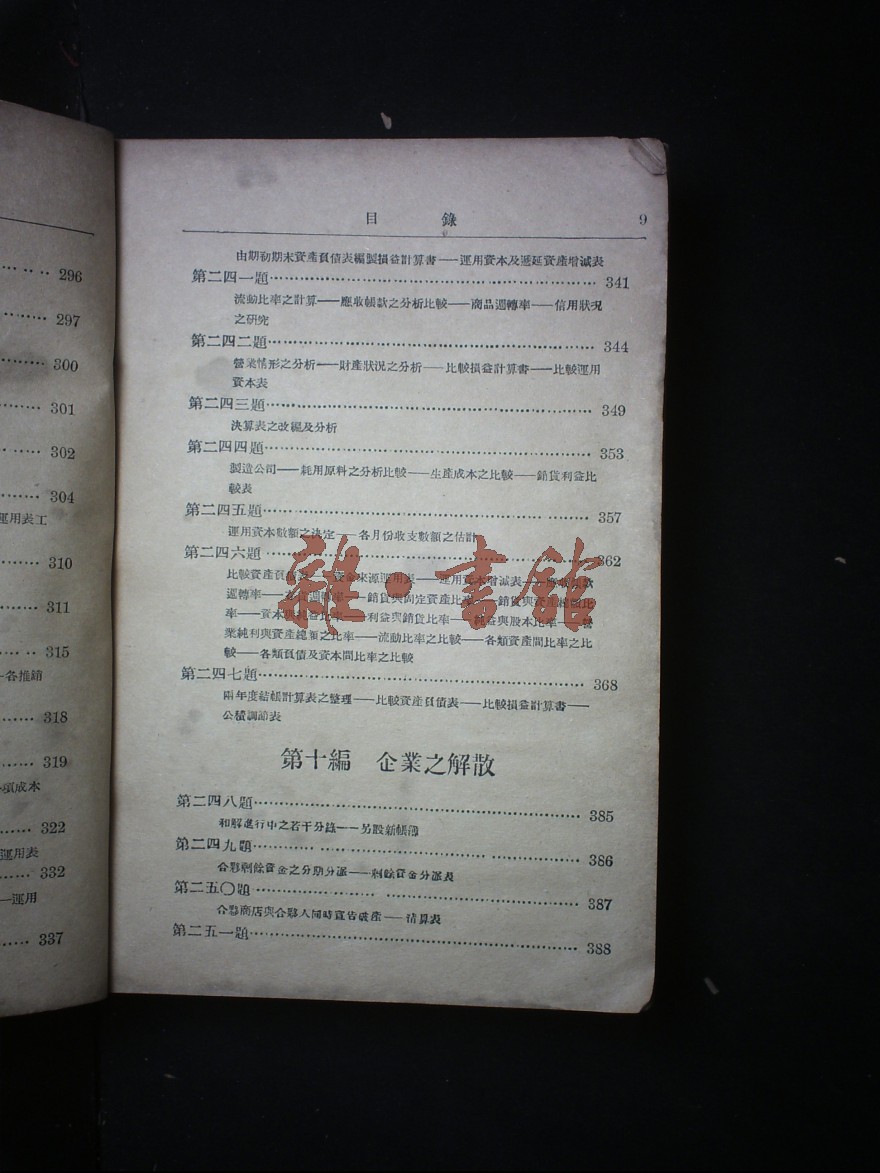 296
297
300
301
302
304
運用表工
310
311
315
各推銷
318
319
項成本
322
運用表
332
運用
337
目 錄 9
由期初期末資產負債表編製損益計算書——運用資本及遞延資產增減表
第二四一題 341
流動比率之計算——應收帳款之分析比較——商品週轉率——信用狀況
之研究
第二四二題 344
營業情形之分析——財產狀況之分析——比較損益計算書——比較運用
資本表
第二四三題 349
決算表之改編及分析
第二四四題 353
製造公司——耗用原料之分析比較——生產成本之比較——銷貨利益比
較表
第二四五題 357
運用資本數額之決定——各月份收支數額之估計
第二四六題 362
比較資產負債表——資金來源運用表——運用資本增減表——應收帳款
週轉率——存貨週轉率——銷貨與固定資產比率——銷貨與資產總額比
率——資本與純益比率——利益與銷貨比率——純益與股本比率——營
業純利與資產總額之比率——流動比率之比較——各類資產間比率之比
較——各類負債及資本間比率之比較
第二四七題 368
兩年度結帳計算表之整理——比較資產負債表——比較損益計算書——
公積調節表
第十編 企業之解散
第二四八題 385
和解進行中之若干分錄——另設新帳簿
第二四九題 386
合夥剩餘資金之分期分派——剩餘資金分派表
第二五〇題 387
合夥商店與合夥人同時宣告破產——清算表
第二五一題 388
雜·書館